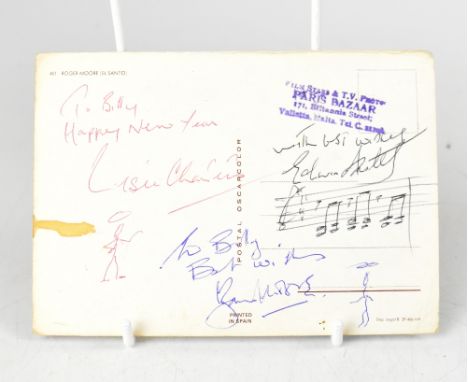 461 ROGER MOORE (EL SANTO)
To Billy
Happy New Year
Leslie Charteris
FILM STARS & T.V. PHOTO
PARIS BAZAAR
171, Britannia Street;
Valletta, Malta. Tel. C.
with best wishes
Edwin Astley
POSTAL OSCARCOLOR
to Billy
Best wishes
PRINTED
IN SPAIN